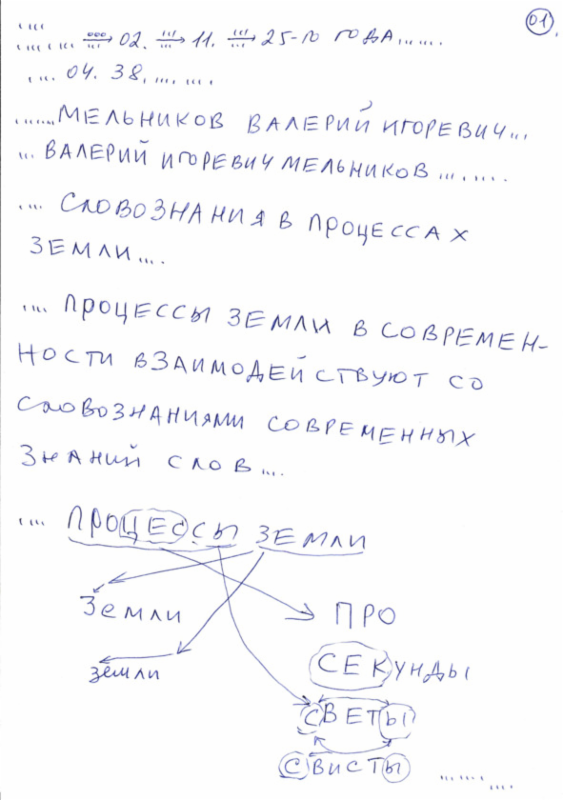 01.
.... ...... → 02. → 11. → 25-го ГОДА......
.... 04. 38. .... ....
.......МЕЛЬНИКОВ ВАЛЕРИЙ ИГОРЕВИЧ...
... ВАЛЕРИЙ ИГОРЕВИЧ МЕЛЬНИКОВ... .....
.... СЛОВОЗНАНИЯ В ПРОЦЕССАХ
ЗЕМЛИ....
.... ПРОЦЕССЫ ЗЕМЛИ В СОВРЕМЕН-
НОСТИ ВЗАИМОДЕЙСТВУЮТ СО
СЛОВОЗНАНИЯМИ СОВРЕМЕННЫХ
ЗНАНИЙ СЛОВ....
.... ПРОЦЕССЫ ЗЕМЛИ
Земли
ПРО
земли
СЕКУНДЫ
СВЕТЫ
СВИСТЫ